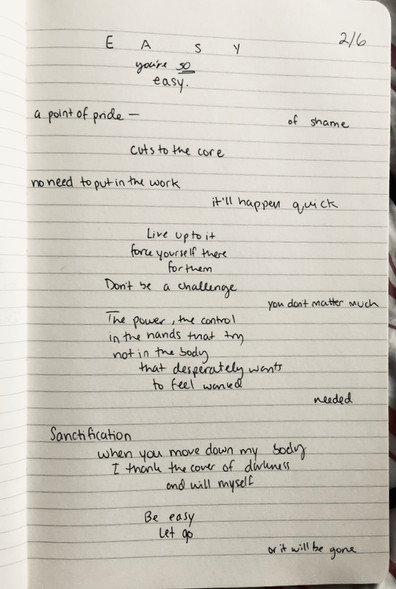 E A S Y
2/6
you're so
easy.
a point of pride —
of shame
cuts to the core
no need to put in the work
it'll happen quick
Live up to it
force yourself there
for them
Don't be a challenge
you dont matter much
The power, the control
in the hands that try
not in the body
that desperately wants
to feel wanted
needed
Sanctification
when you move down my body
I thank the cover of darkness
and will myself
Be easy
Let go
or it will be gone